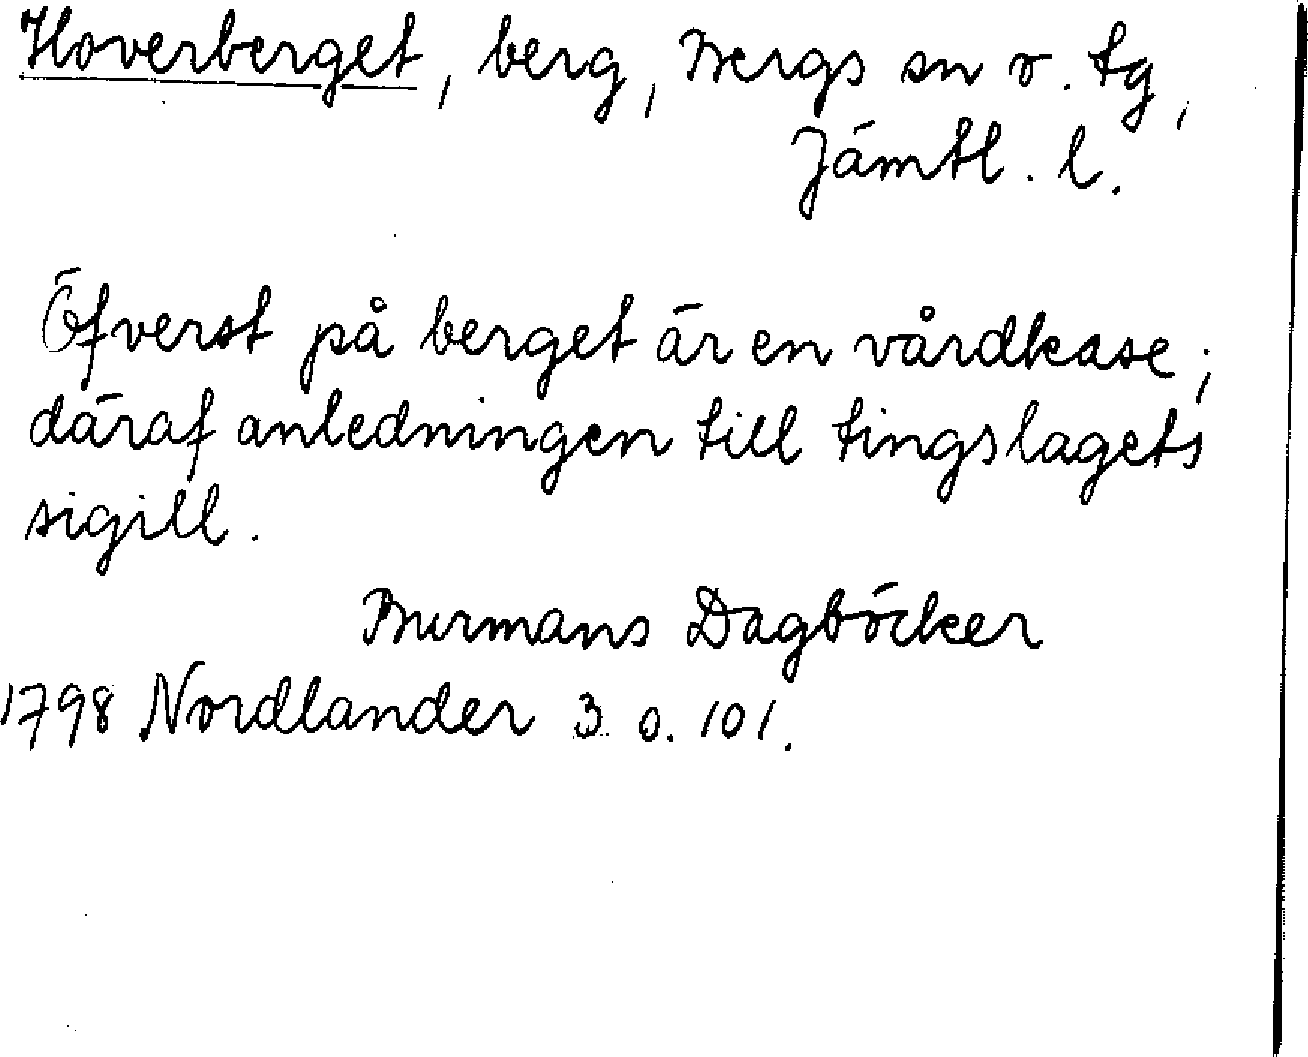 Hoverberget, berg, Bergs sn o. tg,
Jämtl. l.
Öfverst på berget är en vårdkase;
däraf anledningen till tingslagets
sigill.
Burmans Dagböcker
1798 Nordlander 3 s. 101.